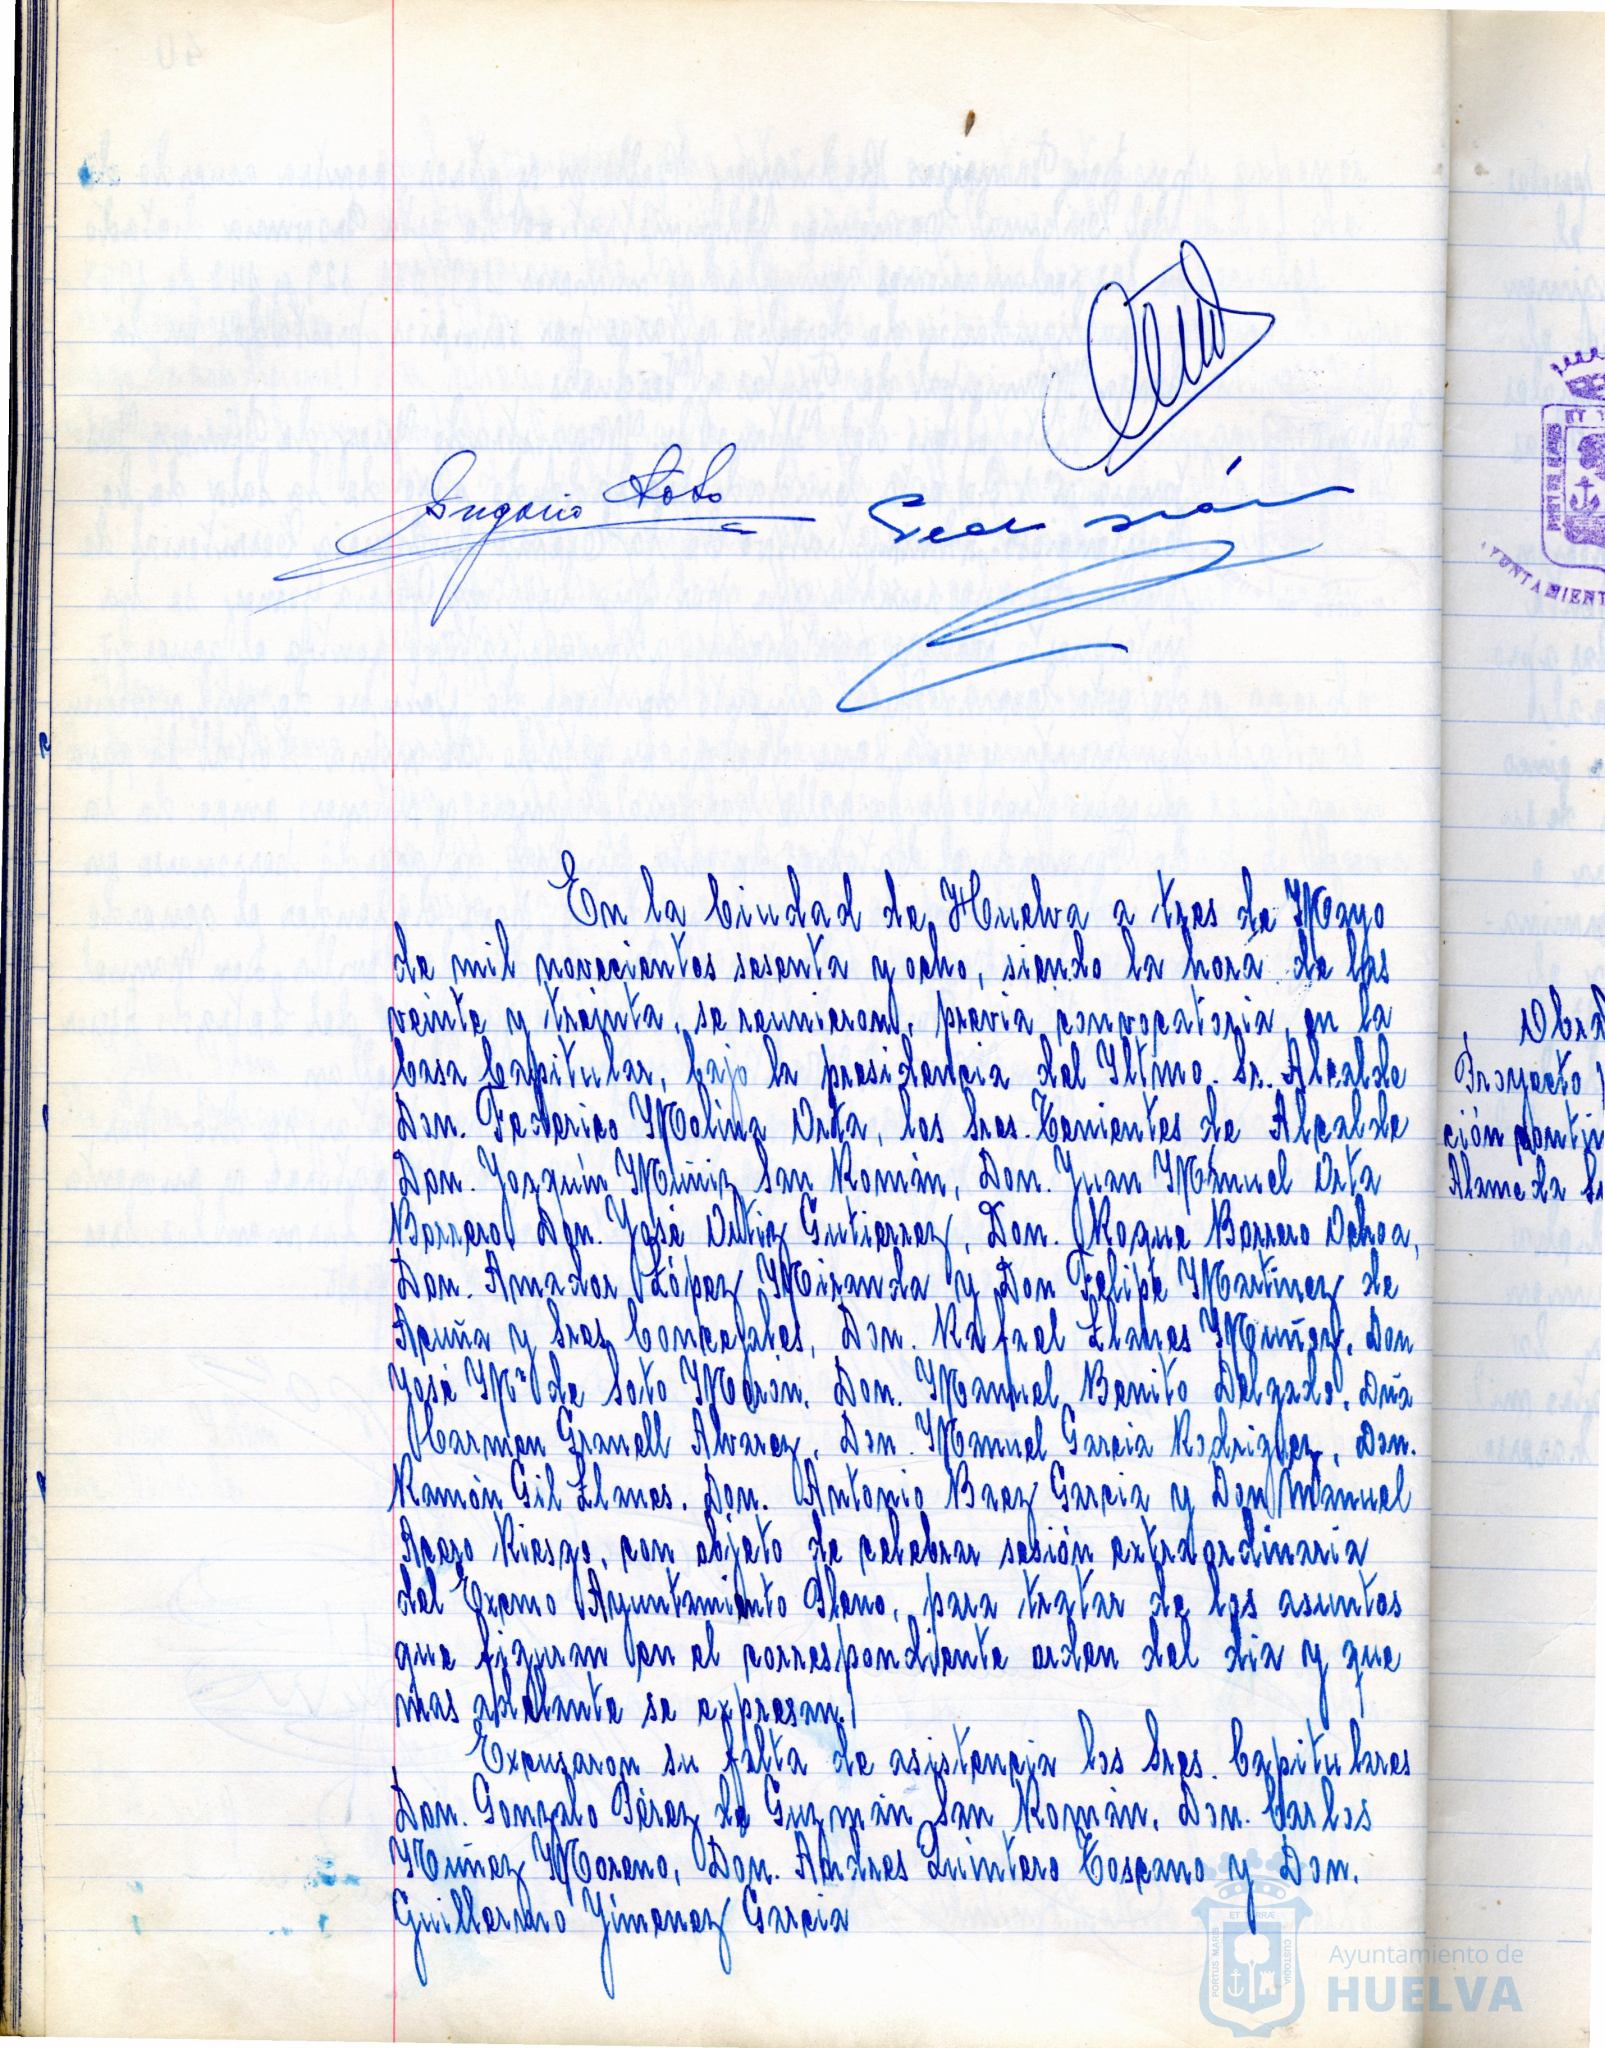 En la Ciudad de Huelva a tres de Mayo
de mil novecientos sesenta y ocho, siendo la hora de las
veinte y treinta, se reunieron, previa convocatoria, en la
Casa Capitular, bajo la presidencia del Iltmo. Sr. Alcalde
Don. Federico Molina Orta, los Sres. Tenientes de Alcalde
Don. Joaquín Muñiz San Román, Don. Juan Manuel Orta
Borrero, Don. José Ortiz Gutierrez, Don. Roque Borrero Ochoa,
Don. Amador López Miranda y Don Felipe Martinez de
Acuña y Sres. Concejales, Don. Rafael Llanes Muñoz, Don
José Mª de Soto Morón, Don. Manuel Benito Delgado, Dña
Carmen Granell Alvarez, Don. Manuel Garcia Rodriguez, Don.
Ramón Gil Llanes, Don. Antonio Baez Garcia y Don Manuel
Acero Riesgo, con objeto de celebrar sesión extraordinaria
del Excmo Ayuntamiento Pleno, para tratar de los asuntos
que figuran en el correspondiente orden del dia y que
mas adelante se expresan.
Excusaron su falta de asistencia los Sres. Capitulares
Don. Gonzalo Pérez de Guzmán San Román, Don. Carlos
Muñoz Moreno, Don. Andres Quintero Toscano y Don.
Guillermo Jimenez Garcia
Proyecto
Alameda
AYUNTAMIENT
PORTUS MARIS ET TERRÆ CUSTODIA
Ayuntamiento de
HUELVA